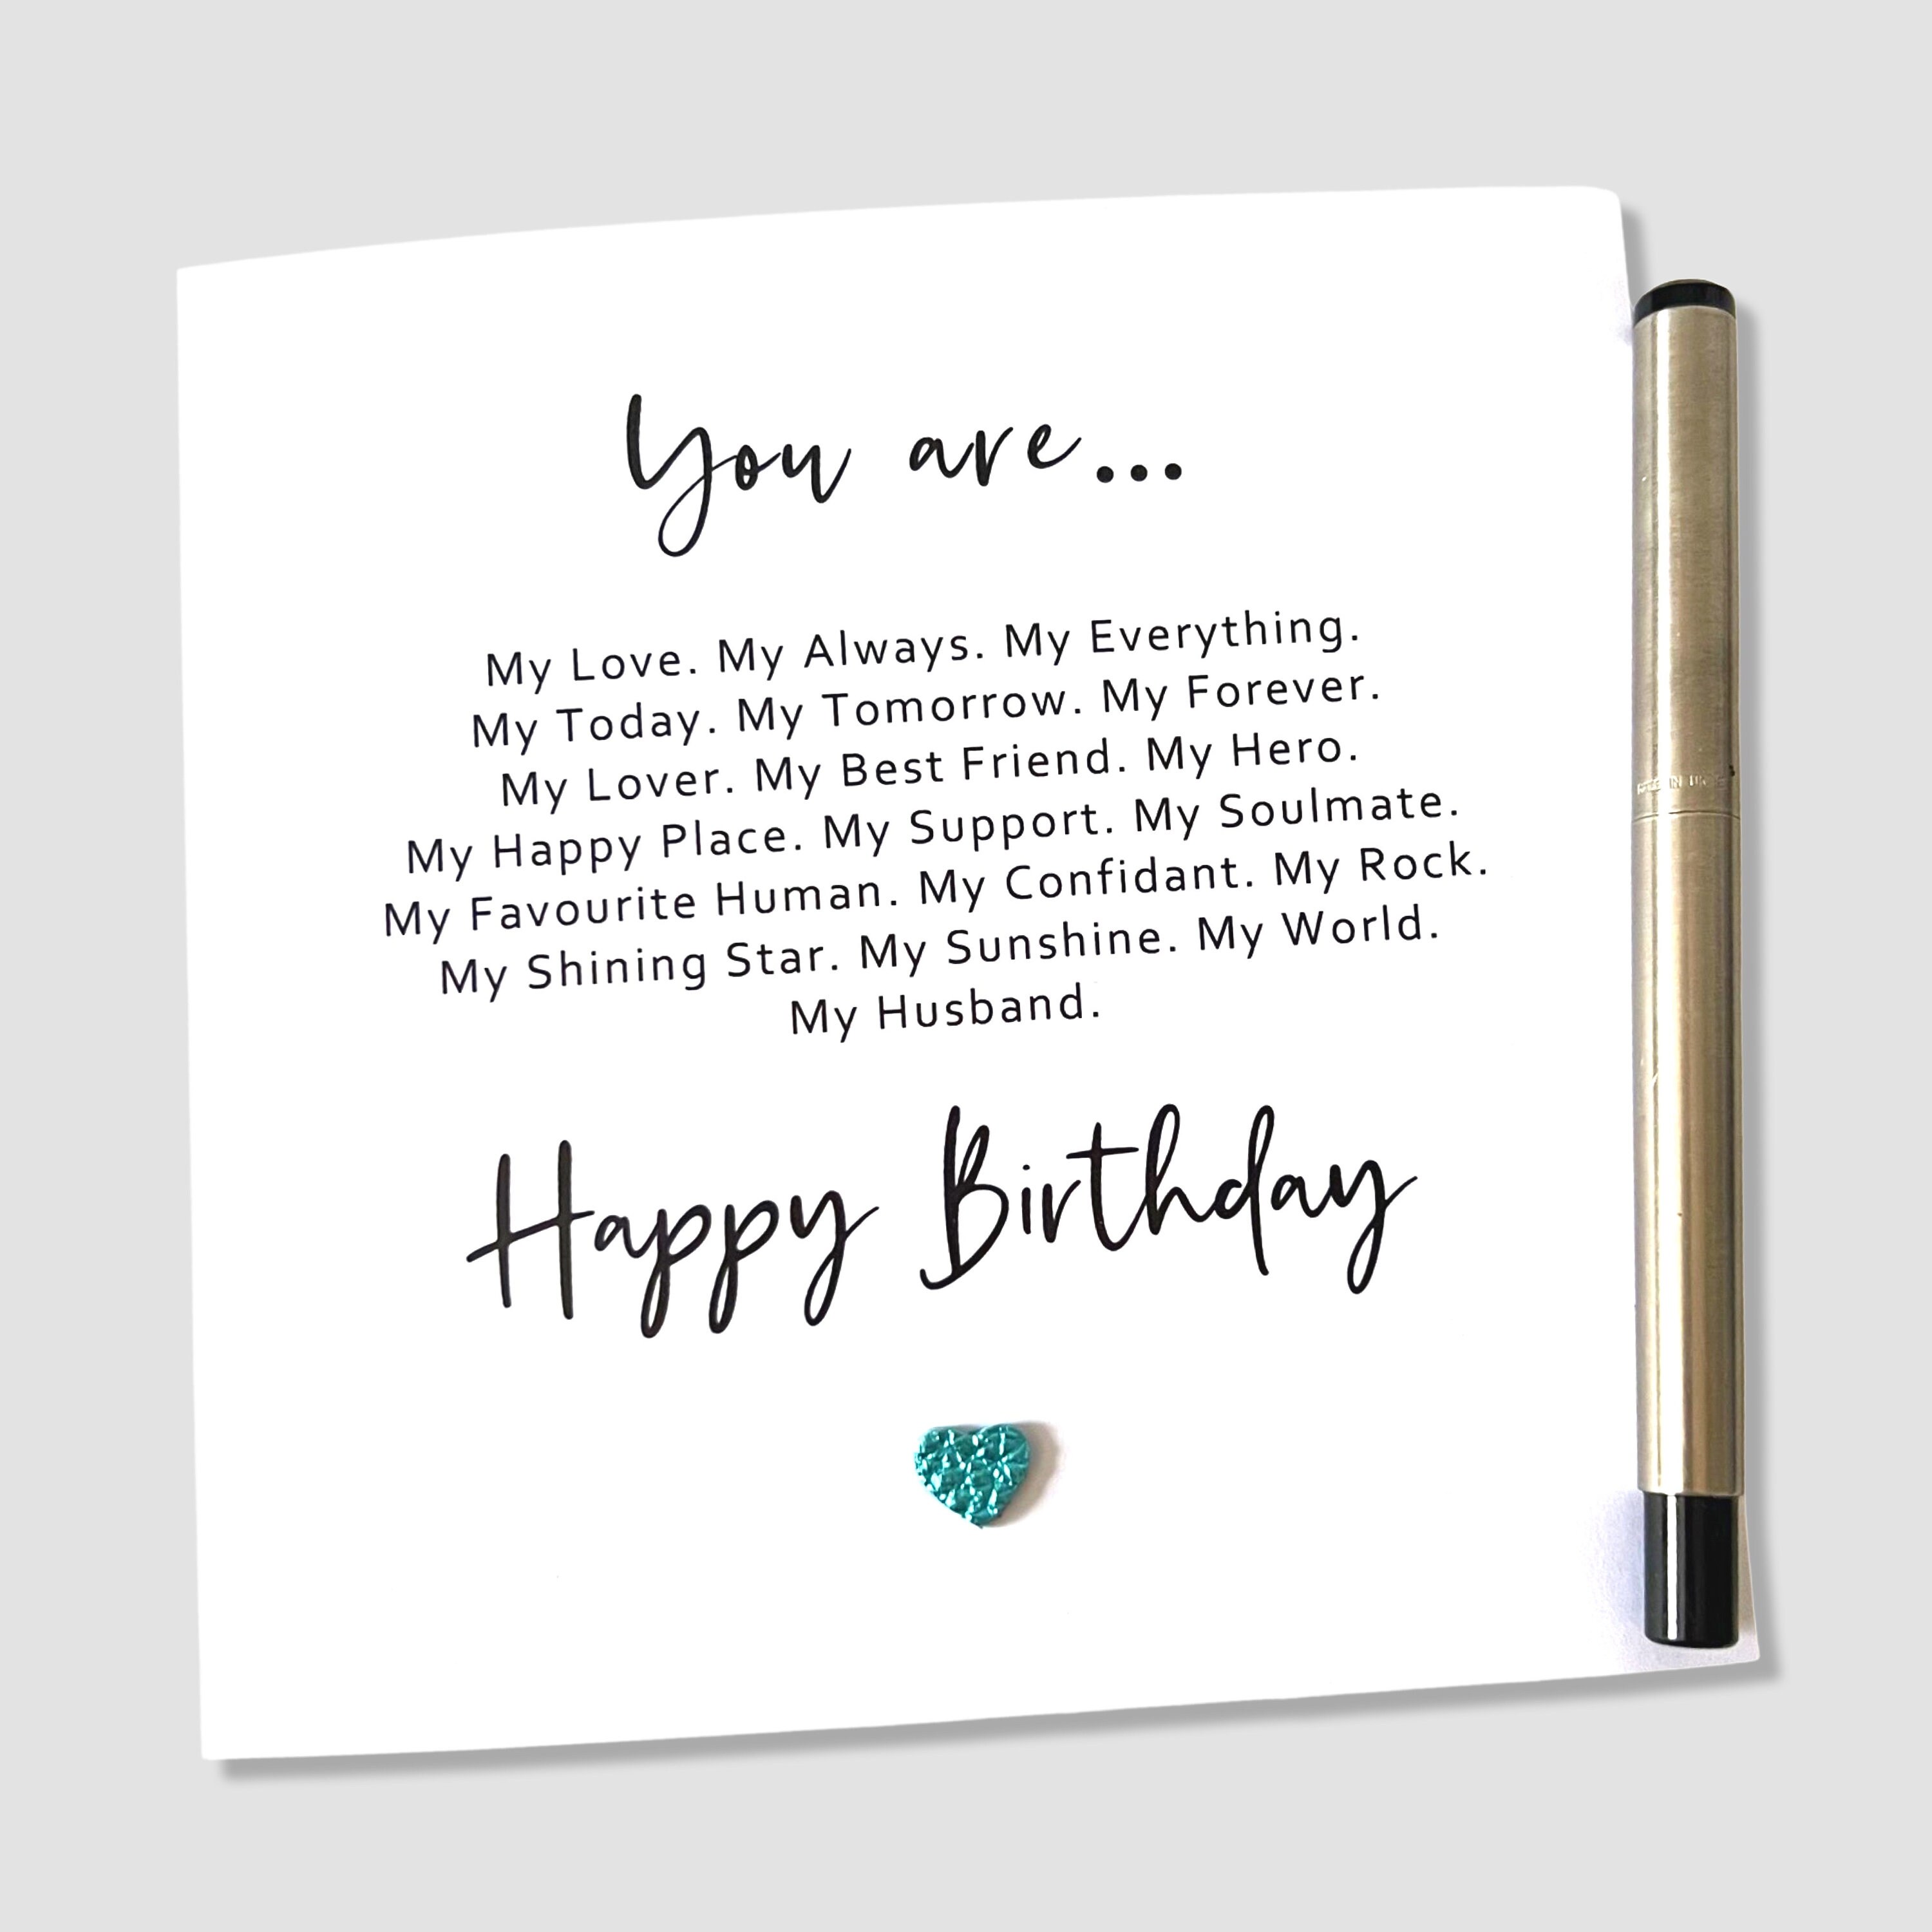 You are...
My Love. My Always. My Everything.
My Today. My Tomorrow. My Forever.
My Lover. My Best Friend. My Hero.
My Happy Place. My Support. My Soulmate.
My Favourite Human. My Confidant. My Rock.
My Shining Star. My Sunshine. My World.
My Husband.
Happy Birthday